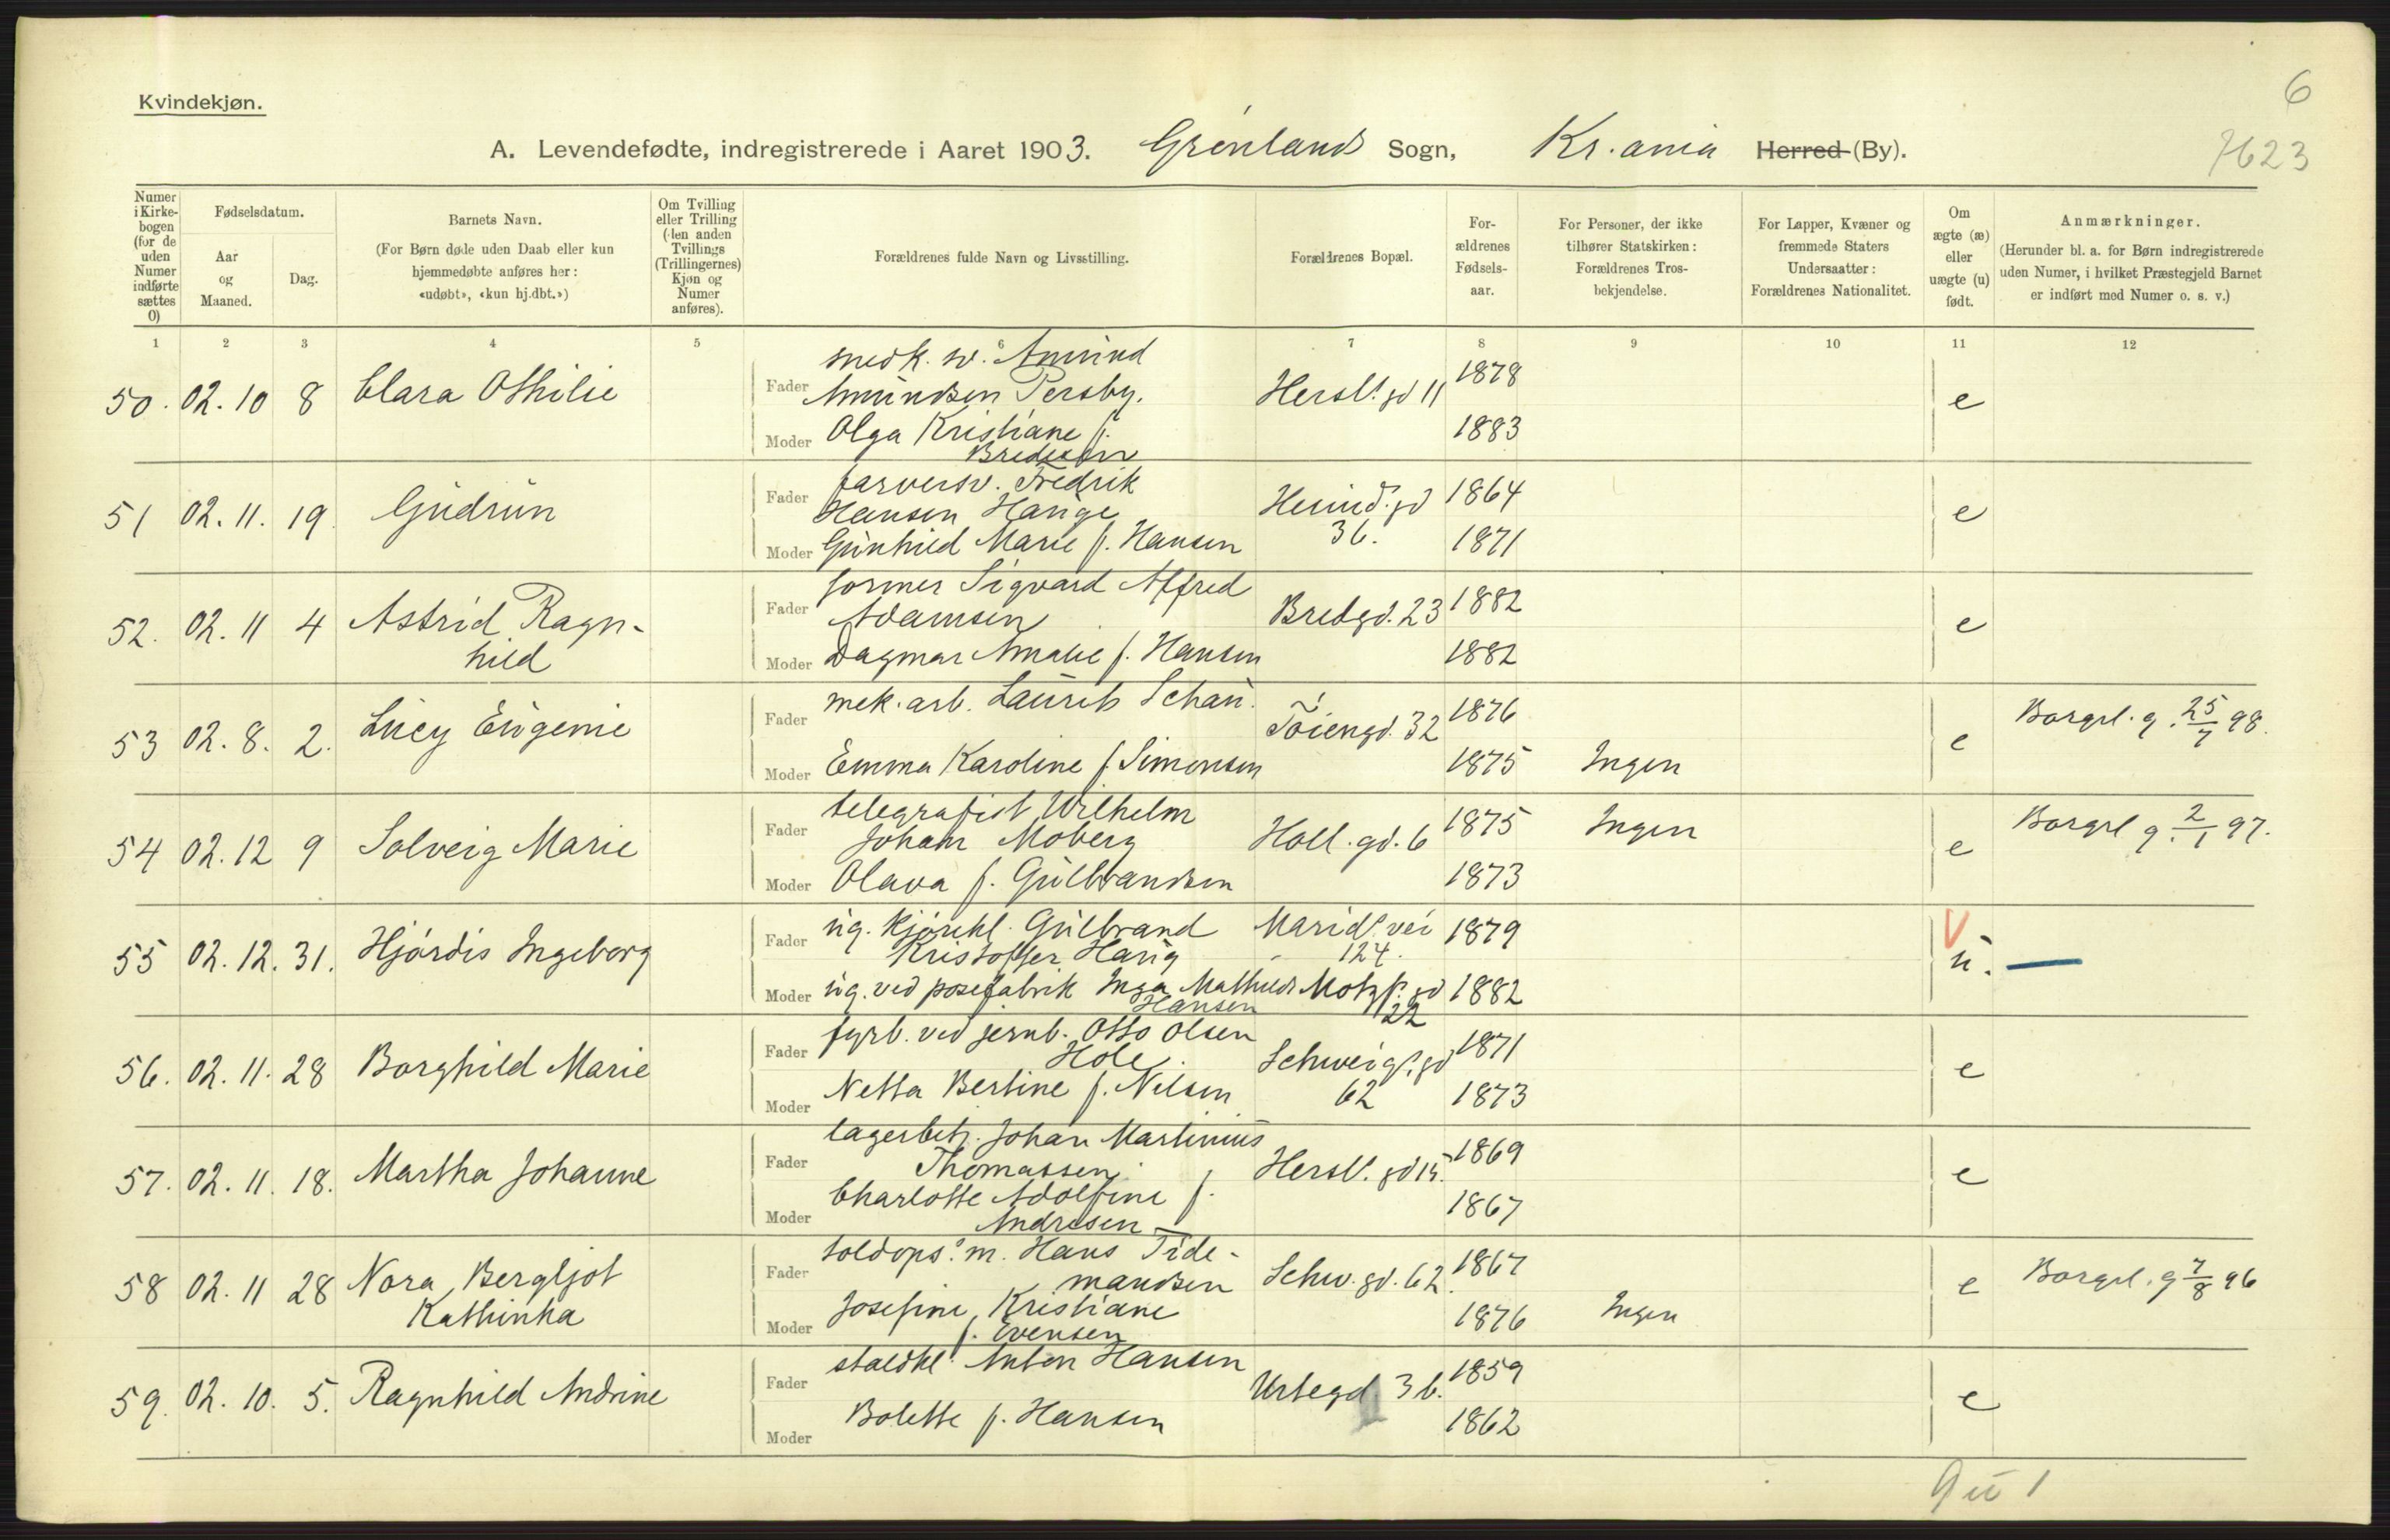 Kvindekjøn.
6
7623
A. Levendefødte, indregistrerede i Aaret 1903. Grønland Sogn, Kr.ania Herred (By).
Numer i Kirkebogen (for de uden Numer indførte sættes 0)
Fødselsdatum.
Aar og Maaned.
Dag.
Barnets Navn.
(For Børn døde uden Daab eller kun hjemmedøbte anføres her: «udøbt», «kun hj.dbt.»)
Om Tvilling eller Trilling (den anden Tvillings (Trillingernes) Kjøn og Numer anføres).
Forældrenes fulde Navn og Livsstilling.
Forældrenes Bopæl.
Forældrenes Fødselsaar.
For Personer, der ikke tilhører Statskirken: Forældrenes Trosbekjendelse.
For Lapper, Kvæner og fremmede Staters Undersaatter: Forældrenes Nationalitet.
Om ægte (æ) eller uægte (u) født.
Anmærkninger.
(Herunder bl. a. for Børn indregistrerede uden Numer, i hvilket Præstegjeld Barnet er indført med Numer o. s. v.)
1 2 3 4 5 6 7 8 9 10 11 12
50. 02. 10 8 Clara Othilie
Fader snedk. sv. Amund
Amundsen Persby.
Hersl. gd 11 1878
Moder Olga Kristiane f.
Bredesen
1883
e
51 02. 11. 19 Gudrun
Fader farversv. Fredrik
Hansen Hauge
36. 1864
Moder Gunhild Marie f. Hansen
1871
e
52. 02. 11 4 Astrid Ragn-
hild
Fader former Sigvard Alfred
Adamsen
Bredgd. 23 1882
Moder Dagmar Amalie f. Hansen
1882
e
53 02. 8. 2. Lucy Eugenie
Fader mek. arb. Laurits Schau.
Töiengd. 32 1876
Moder Emma Karoline f. Simonsen
1875 Ingen
e Borgrl. g. 25/7 98.
54 02. 12 9 Solveig Marie
Fader telegrafist Wilhelm
Johan Moberg
Holl. gd. 6 1875 Ingen
Moder Olava f. Gulbrandsen
1873
e Borgrl g. 2/1 97.
55 02. 12. 31. Hjördis Ingeborg
Fader ug. kjörekl. Gulbrand
Kristoffer Haug
Marid. vei 124. 1879
Moder ug. ved posefabrik Inga Mathilde
Hansen
Motzf. gd 22 1882
u.
56. 02. 11. 28 Borghild Marie
Fader fyrb. ved jernb. Otto Olsen
Hole
Schweig. gd 62 1871
Moder Netta Bertine f. Nilsen
1873
e
57. 02. 11. 18. Martha Johanne
Fader lagerbetj. Johan Martinius
Thomassen
Hersl. gd 15. 1869
Moder Charlotte Adolfine f.
Andresen
1867
e
58 02. 11 28 Nora Bergljot
Kathinka
Fader toldops. m. Hans Tide-
mandsen
Schw. gd. 62. 1867
Moder Josefine Kristiane
f. Evensen
1876 Ingen
e Borgrl. g 7/8 96
59. 02. 10. 5. Ragnhild Andrine
Fader staldkl. Anton Hansen
Urtegd. 36. 1859
Moder Bolette f. Hansen
1862
e
9 u 1